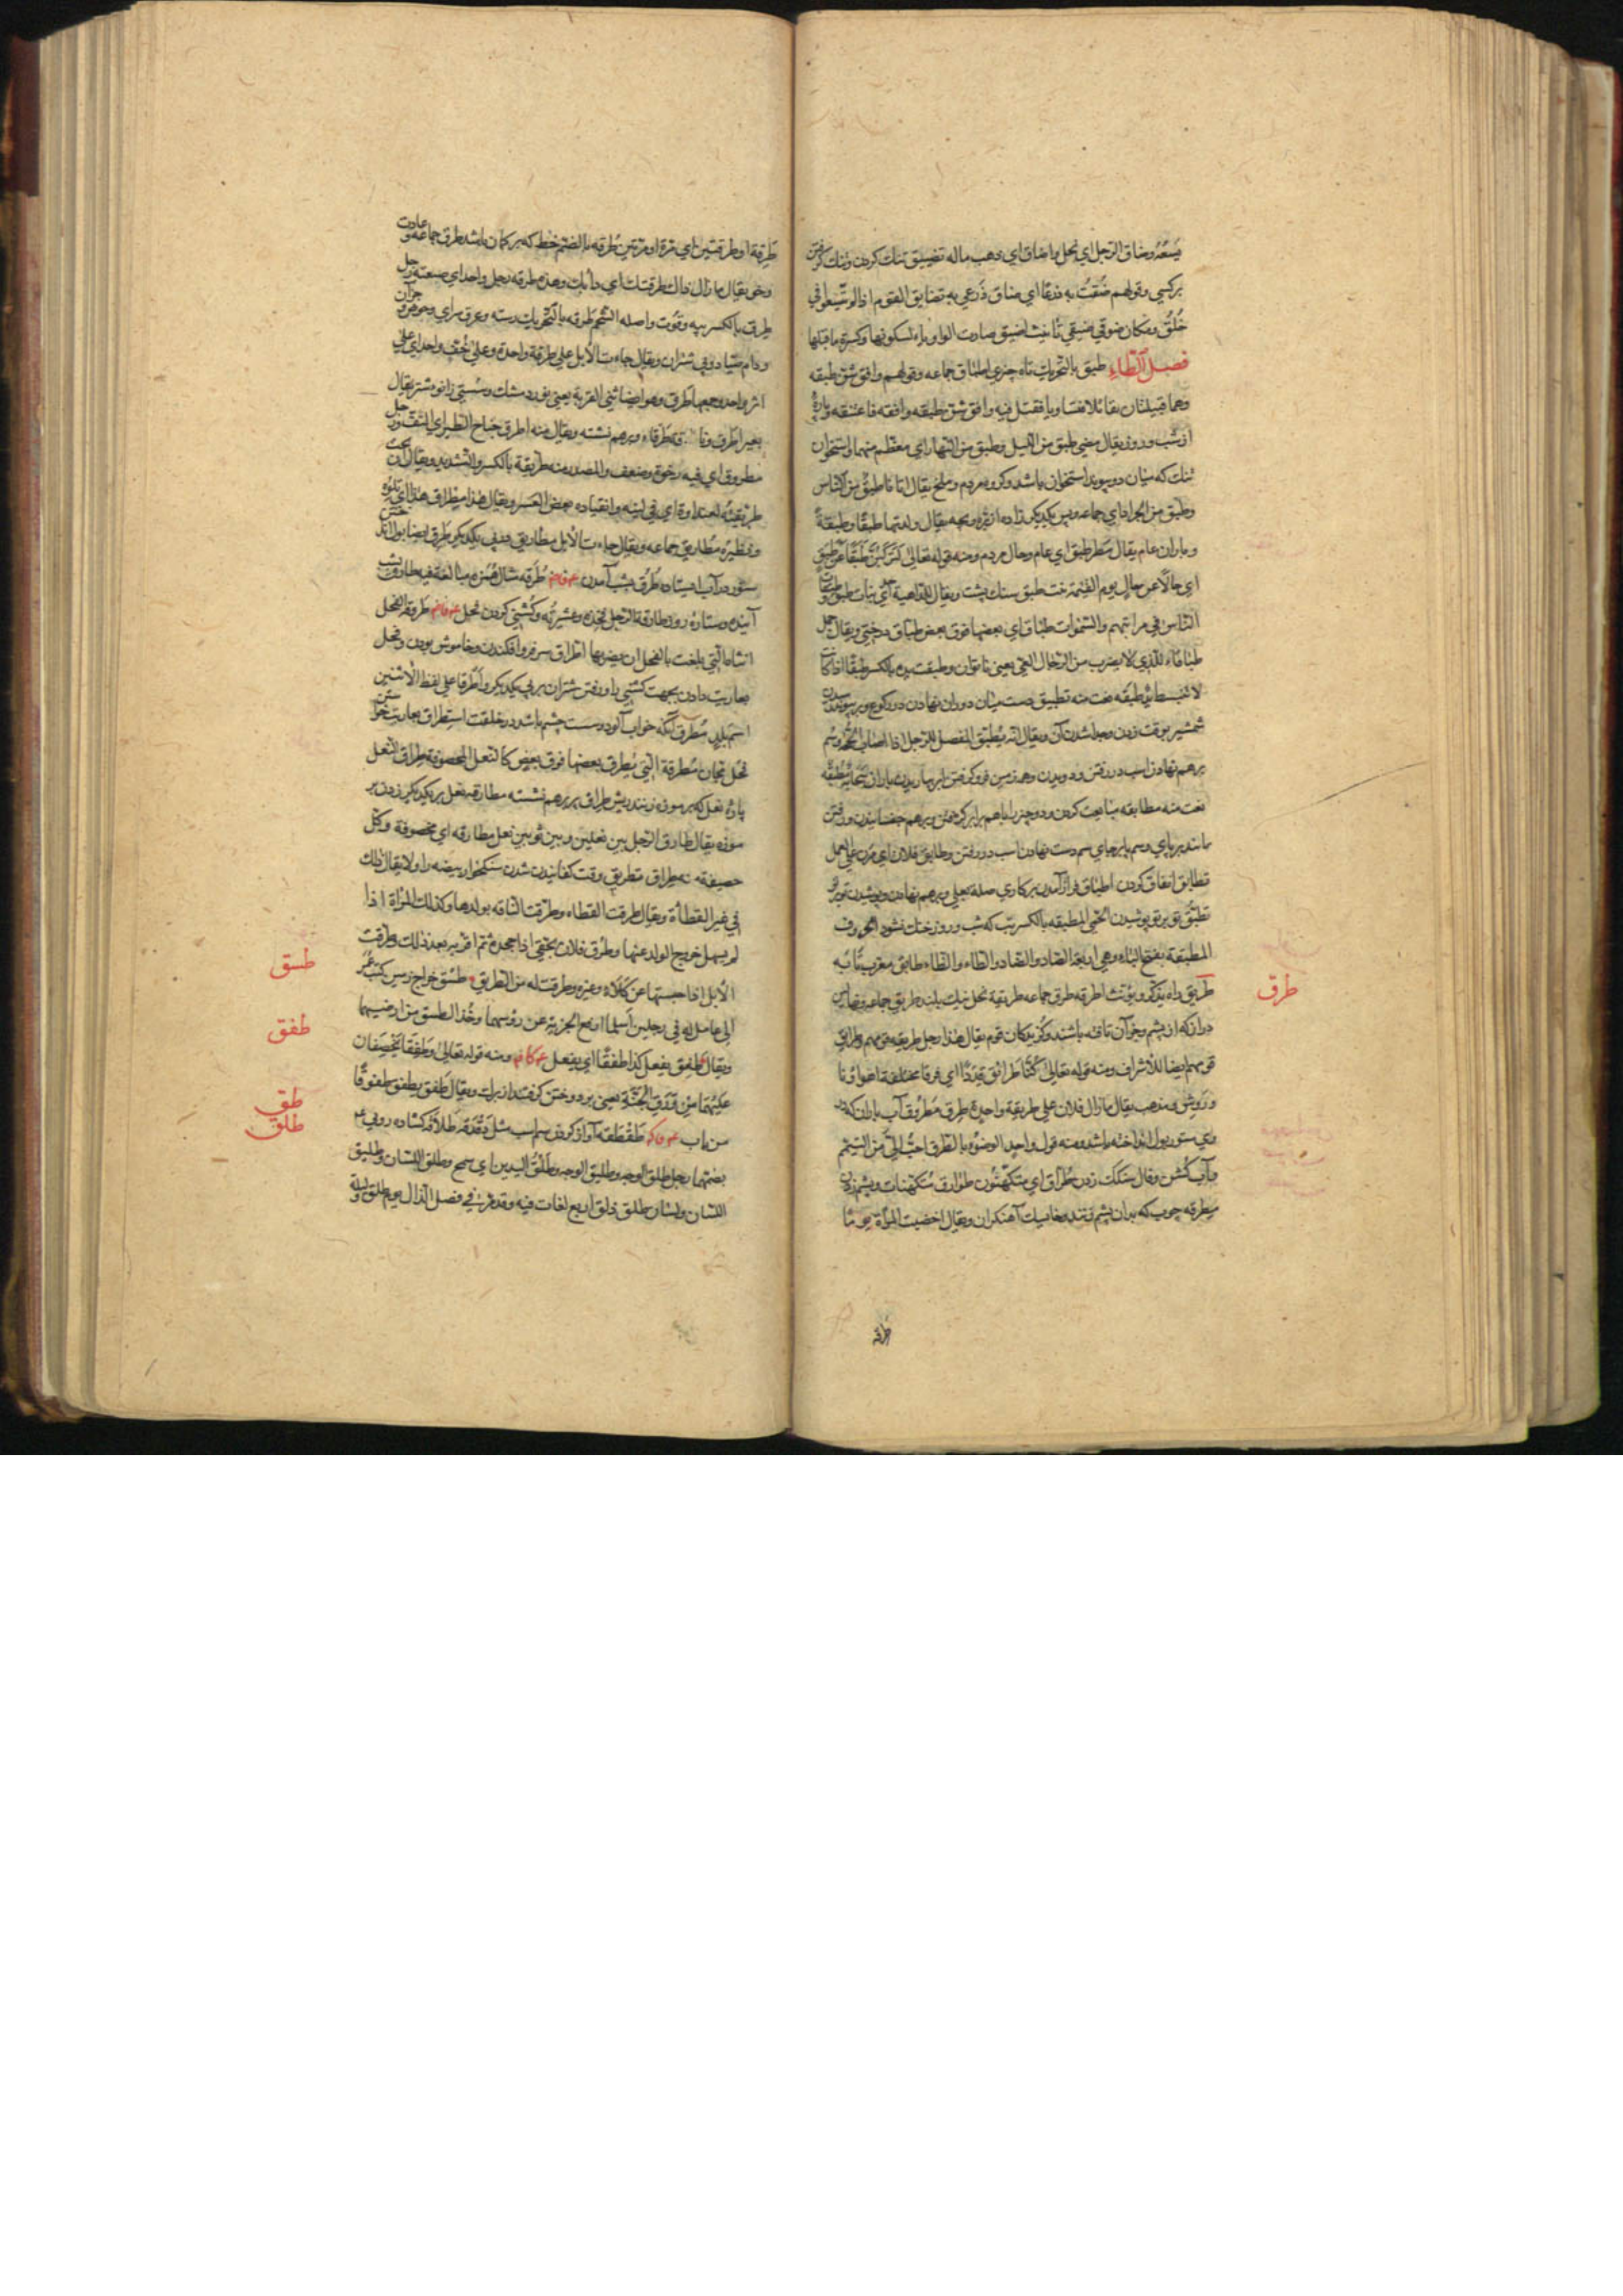 يسعه وضاق الرجل اي بخل واضاق اي ذهب ماله تضييق تنك كردن وتنك كرفتن
بركسي وقولهم ضقت به ذرعا اي ضاق ذرعي به تضايق القوم اذا لم يتسعوا في
خلق ومكان ضوقي ضيقي تانيث اضيق صارت الواو ياء لسكونها وكسرة ما قبلها
فصل الطاء طبق بالتحريك تاه چيزي اطباق جماعه وقولهم وافق شن طبقه
وهما قبيلتان ويقال وافق شن طبقه وافقه فاعتنقه وپاره
از شب وروز يقال مضى طبق من الليل وطبق من النهار اي معظم منهما واستخوان
تنك كه ميان دو پيوند استخوان باشد وكروه مردم وملخ يقال اتانا طبق من الناس
وطبق من الجراد اي جماعه وپس يكديكر زاده از بره وبچه يقال ولدتها طبقا وطبقة
وباران عام يقال مطر طبق اي عام وحال مردم ومنه قوله تعالى لتركبن طبقا عن طبق
اي حالا عن حال يوم القيمة بنت طبق سنك پشت ويقال للداهية احدى بنات طبق وطبقات
الناس في مراتبهم والسموات طباق اي بعضها فوق بعض طباق درختي ويقال جمل
طباقاء للذي لا يضرب من الرجال العيي يعني ناتوان وطبقت يده بالكسر طبقا اذا كانت
لا تنبسط طبقه نعت منه تطبيق دست ميان دو ران نهادن در ركوع وبر پيوند رسيدن
شمشير بوقت زدن وجدا شدن آن ويقال انه يطبق المفصل للرجل اذا اصاب الحجة وسم
برهم نهادن اسب در رفتن ودويدن وهمه زمين فرو كرفتن ابر بباريدن باران سحابة مطبقه
نعت منه مطابقه متابعت كردن ودو چيز را باهم برابر كردن وبرهم چفسانيدن ورفتن
مانند بر پاي وسم پاي بر جاي سم دست نهادن اسب در رفتن وطابق فلان اي مرن على العمل
تطابق اتفاق كردن اطباق فراز آمدن بر كاري صله بعلى وبرهم نهادن وپوشيدن توبرتو
تطبق توبرتو پوشيدن الحمى المطبقه بالكسر تب كه شب وروز خنك نشود الحروف
المطبقة بفتح الباء وهي اربعة الصاد والضاد والطاء والظاء طابق معرب تابه
طريق راه يذكر ويؤنث اطرقه طرق جماعه طريقة نخل نيك بلند طريق جماعه
دراز كه از پشم وجز آن بافته باشند وكزيدكان قوم يقال هذا رجل طريقه قومهم وطرائق
قومهم ايضا للاشراف ومنه قوله تعالى كنا طرائق قددا اي فرقا مختلفة اهواؤنا
وروش ومذهب يقال ما زال فلان على طريقة واحدة طرق مطروق آب باران كه در
وي ستور بول انداخته باشد ومنه قول واحد الوضوء بالطرق احب الي من التيمم
وآب كشن وفال سنكك زدن طراق اي متكهنون طوارق متكهنات وپشم زدن
مطرقه چوب كه بدان پشم زنند وخايسك آهنكران ويقال اختضبت المرأة
طرقه
طرق
طرقة او طرقتين اي مرة او مرتين طرقه بالضم خط كه بر كمان باشد طرق جماعه وعادت
وخو يقال ما زال ذاك طرقتك اي دأبك وهذه طرقة رجل واحد اي صنعة رجل
طرق بالكسر پيه وقوت واصله الشحم طرقه بالتحريك رسته وعرق سراي وحوض وجز آن
ودام صياد وپي شتران ويقال جاءت الابل على طرقة واحدة وعلى خف واحد اي على
اثر واحد وجمعها طرق وهو ايضا ثني القربة يعني نورد مشك وسستي زانوي شتر يقال
بعير اطرق وناقة طرقاء وبرهم نشسته ويقال منه اطرق جناح الطير اي التف ورجل
مطروق اي فيه رخوة وضعف والمصدر منه طريقة بالكسر والتشديد ويقال ان تحت
طريقته لعندأوة اي في لينه وانقياده بعض العسر ويقال هذا مطراق هذا اي تلوه
ونظيره مطاريق جماعه ويقال جاءت الابل مطاريق در پي يكديكر طرق ايضا بول انداختن
ستور در آب ايستاده طرق بشب آمدن طرقه مثال همزه مبالغة فيه طارق بشب
آينده وستاره روز طارقة الرجل فخذه وعشيرته وكشني كردن فحل طروقة الفحل
انثاها التي بلغت بالفحل ان يضربها اطراق سر فرو افكندن وخاموش بودن وفحل
بعاريت دادن بجهت كشني را ورفتن شتران بر پي يكديكر واطرقا على لفظ الاثنين
اسم بلد مطرق آنكه خواب آلود وسست چشم باشد در خلقت استطراق بعاريت خواستن
فحل مجان مطرقة التي يطرق بعضها فوق بعض كالنعل المخصوفة طراق النعل
پاره نعل كه بر موزه زنند ريش طراق پر برهم نشسته مطارقه نعل بر يكديكر زدن بر
موزه يقال طارق الرجل بين نعلين وبين ثوبين نعل مطارقه اي مخصوفة وكل
خصيفة طراق تطريق وقت كفانيدن شدن سنكخوار بيضه را ولا يقال ذلك
في غير القطاة ويقال طرقت القطاة وطرقت الناقه بولدها وكذلك المرأة اذا
لم يسهل خروج الولد عنها وطرق فلان بحقي اذا جحده ثم اقر به بعد ذلك وطرقت
الابل اذا حبستها عن كلاء وغيره وطرقت له من الطريق طسق خراج زمين كتب عمر
الى عامل له في رجلين اسلما ارفع الجزية عن رؤسهما وخذ الطسق من ارضيهما
ويقال طفق يفعل كذا طفقا اي يفعل ومنه قوله تعالى وطفقا يخصفان
عليهما من ورق الجنة يعني بر دوختن كرفتند از برك ويقال طفق يطفق طفوقا
من باب طقطقه آواز كردن سم اسب مثل دقدقه طلاقه كشاده رويي
بضمتها رجل طلق الوجه وطليق الوجه وطلق اليدين اي سمح وطلق اللسان وطليق
اللسان ولسان طلق ذلق اربع لغات فيه وقد مرت في فصل الذال يوم طلق وليلة
طسق
طفق
طق
طلق